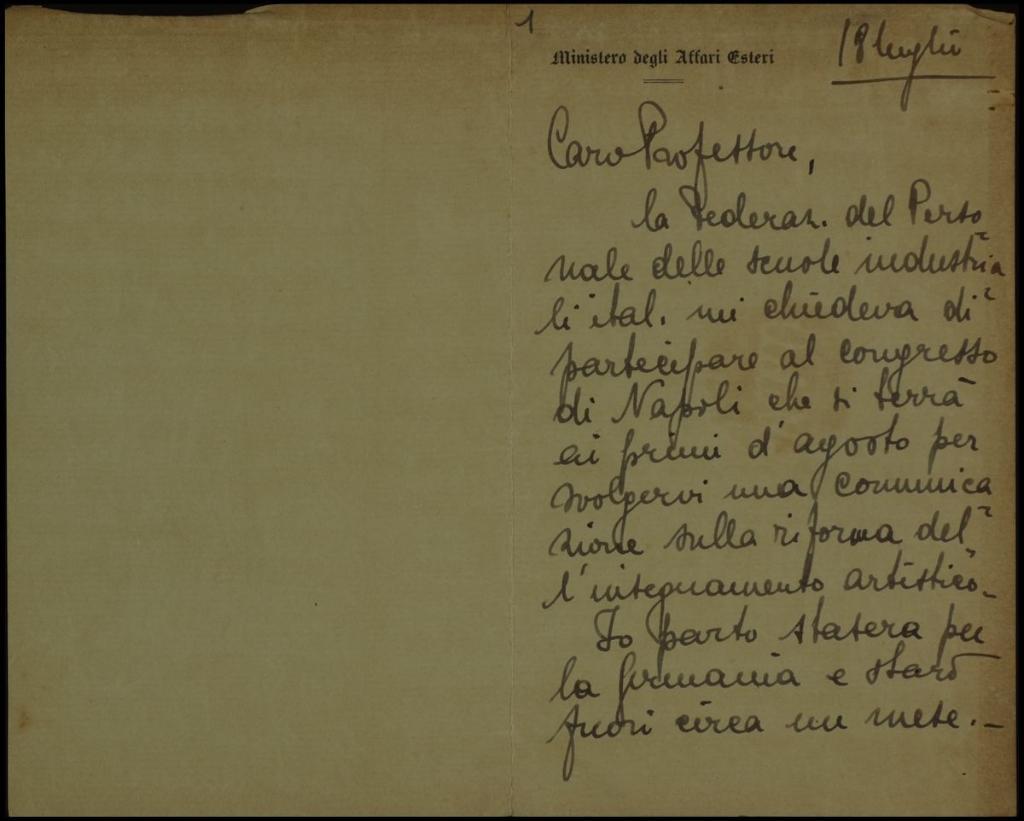 1
Ministero degli Affari Esteri
18 luglio
Caro Professore,
la Federaz. del Perso
nale delle scuole industria
li ital. mi chiedeva di
partecipare al congresso
di Napoli che si terrà
ai primi d'agosto per
svolgervi una comunica
zione sulla riforma del
l'insegnamento artistico_
Io parto stasera per
la Germania e starò
fuori circa un mese._